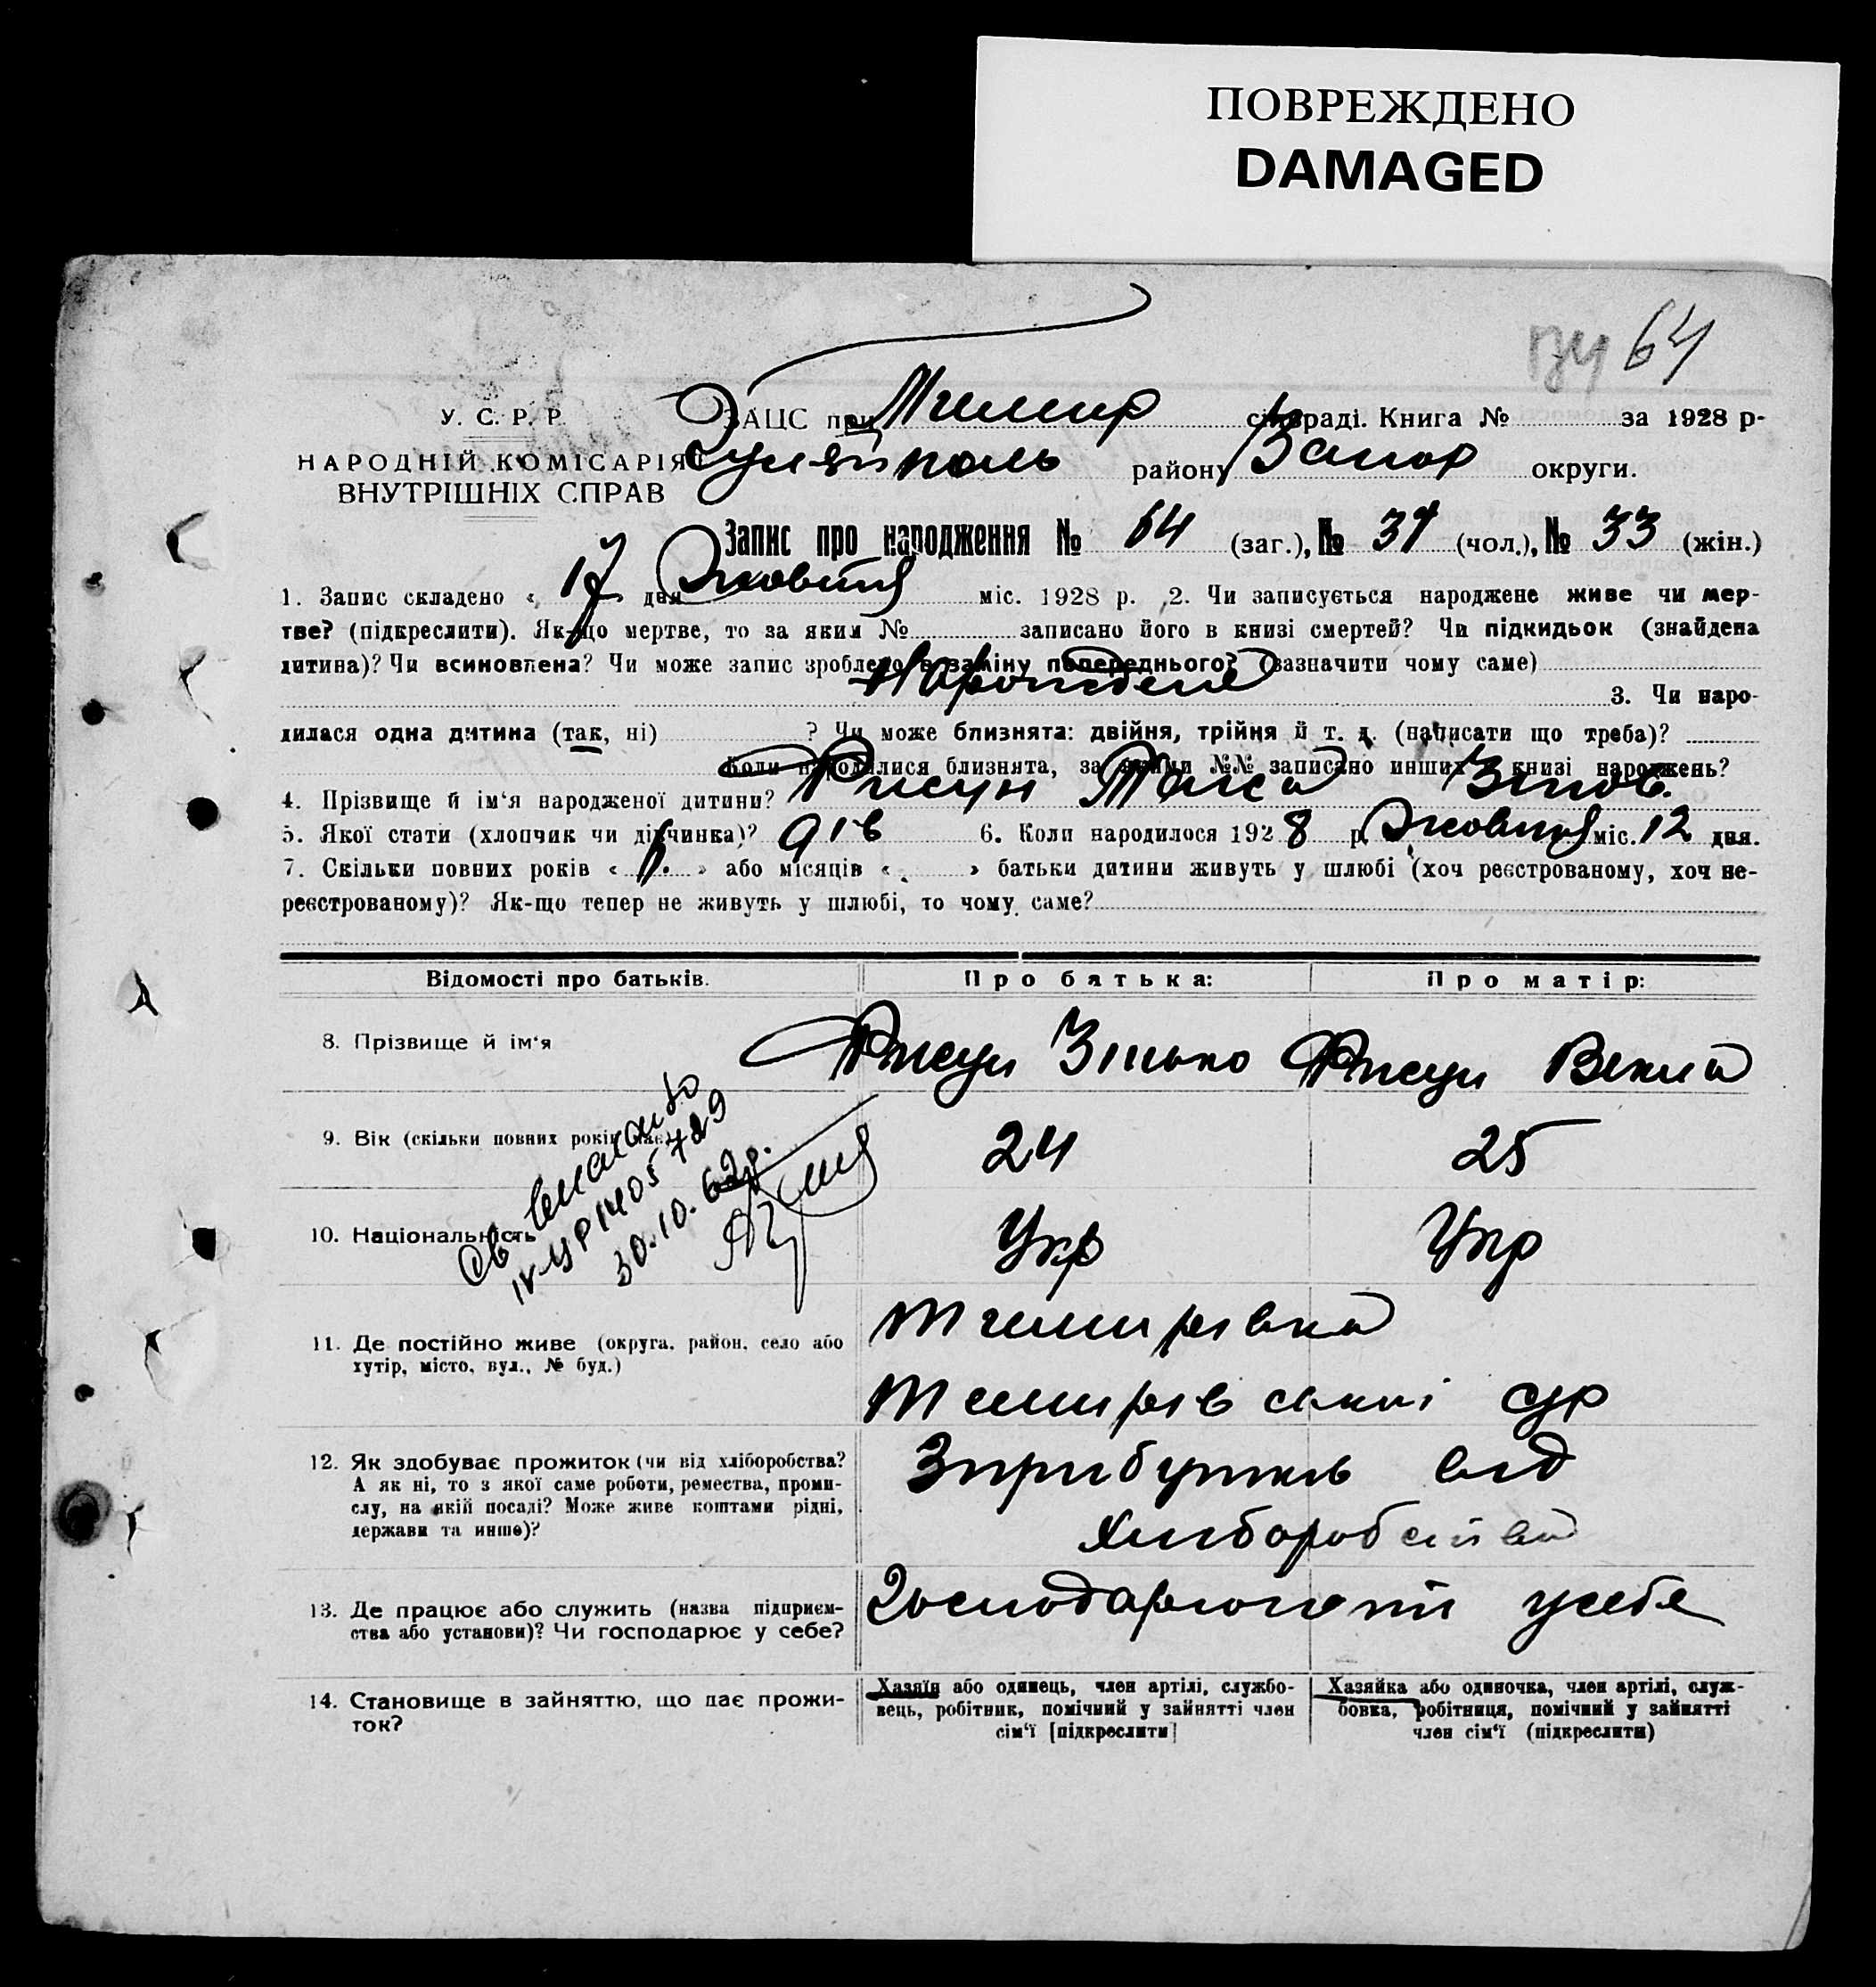 ПОВРЕЖДЕНО
DAMAGED
64
У. С. Р. Р.
НАРОДНІЙ КОМІСАРІЯТ
ВНУТРІШНІХ СПРАВ
ЗАЦС при Темир сільраді. Книга № за 1928 р-
Гуляйполь району Запор округи.
Запис про народження № 64 (заг.), № 31 (чол.), № 33 (жін.)
1. Запис складено « 17 дня Жовтня міс. 1928 р. 2. Чи записується народжене живе чи мер-
тве? (підкреслити). Як-що мертве, то за яким № записано його в книзі смертей? Чи підкидьок (знайдена
дитина)? Чи всиновлена? Чи може запис зроблено в заміну попереднього? (зазначити чому саме)
3. Чи наро-
дилася одна дитина (так, ні) ? Чи може близнята: двійня, трійня й т. д. (написати що треба)?
Коли народилися близнята, за якими №№ записано инших в книзі народжень?
4. Прізвище й ім'я народженої дитини? Фисун Таиса Зінов.
5. Якої стати (хлопчик чи дівчинка)? дів 6. Коли народилося 1928 р. Жовтня міс. 12 дня.
7. Скільки повних років « » або місяців « » батьки дитини живуть у шлюбі (хоч реєстрованому, хоч не-
реєстрованому)? Як-що тепер не живуть у шлюбі, то чому саме?
Відомості про батьків. Про батька: Про матір:
8. Прізвище й ім'я Фисун Зінько Фисун Векла
9. Вік (скільки повних років має) 24 25
30.10.62г.
10. Національність Укр Укр
11. Де постійно живе (округа, район, село або
хутір, місто, вул., № буд.)
Темирівка
Темирівської ср
12. Як здобуває прожиток (чи від хліборобства?
А як ні, то з якої саме роботи, ремества, проми-
слу, на якій посаді? Може живе коштами рідні,
держави та инше)?
Зприбутків від
хліборобства
13. Де працює або служить (назва підприєм-
ства або установи)? Чи господарює у себе?
Господарюють усебе
14. Становище в зайняттю, що дає прожи-
ток?
Хазяїн або одинець, член артілі, службо-
вець, робітник, помічний у зайнятті член
сім'ї [підкреслити]
Хазяйка або одиночка, член артілі, служ-
бовка, робітниця, помічний у зайнятті
член сім'ї (підкреслити)